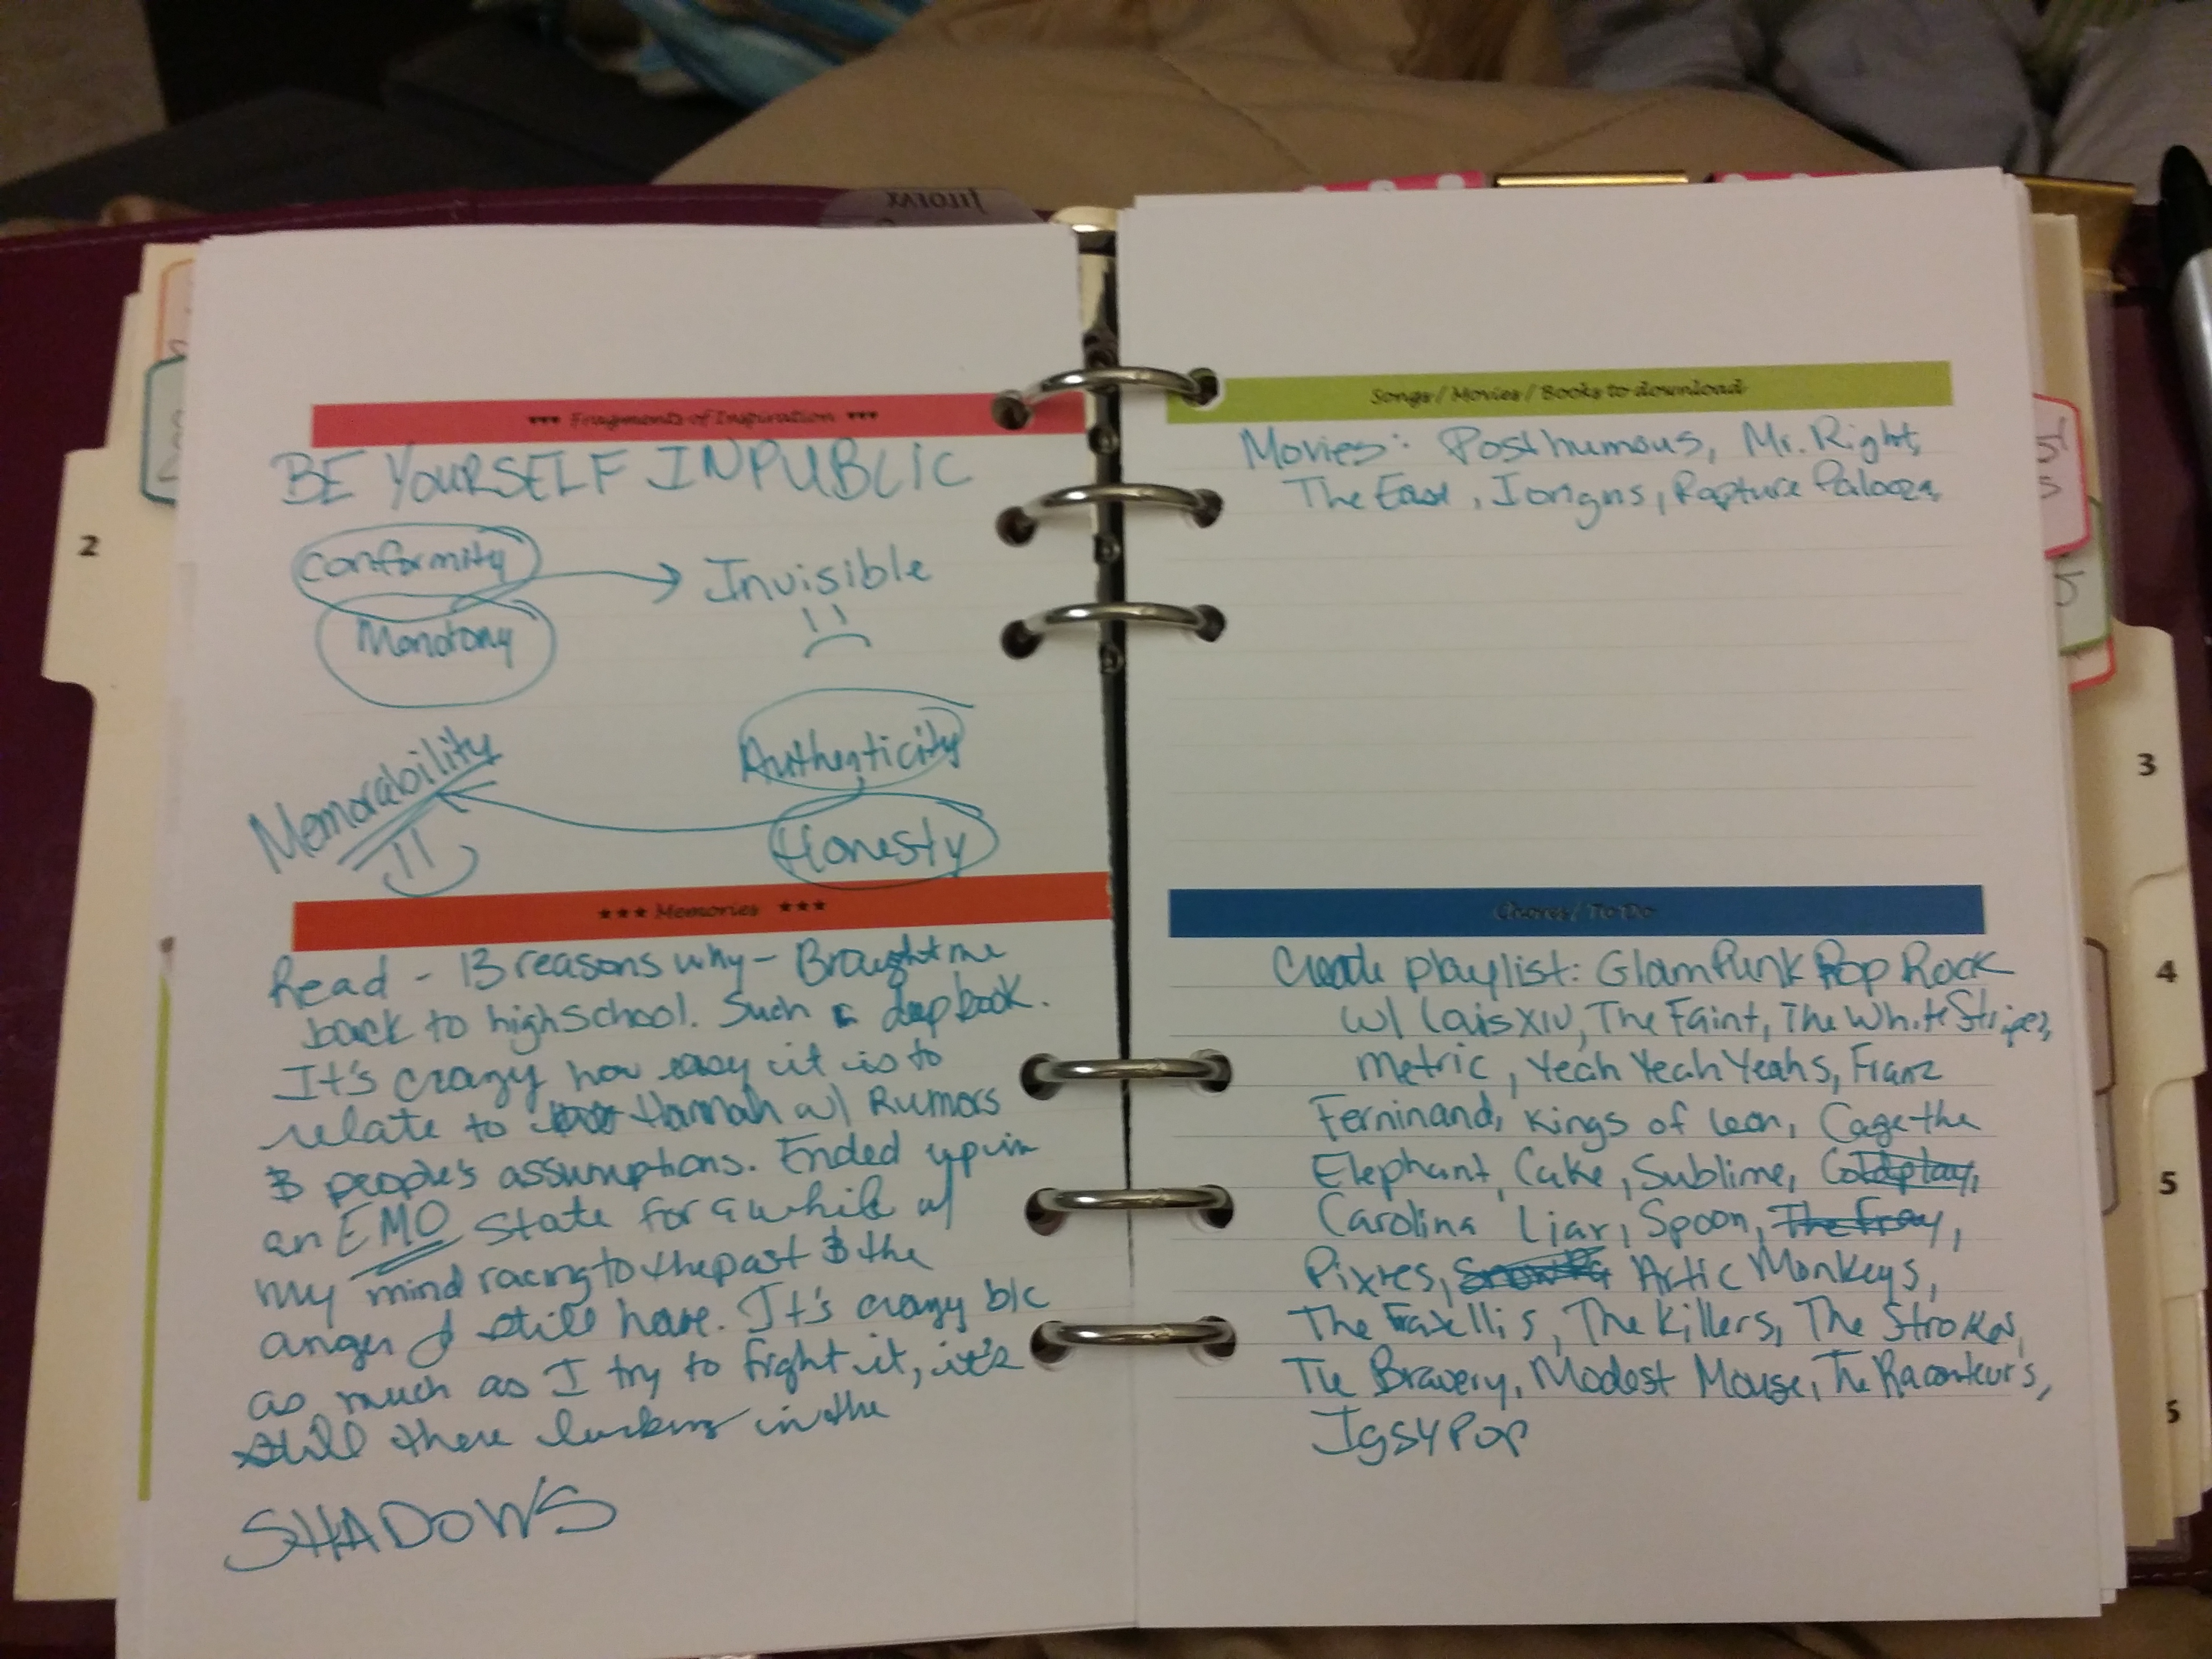 FILOFAX
*** Fragments of Inspiration ***
BE YOURSELF IN PUBLIC
Conformity
Invisible
Monotony
Authenticity
Memorability
Honesty
*** Memories ***
Read - 13 reasons why - Brought me
back to highschool. Such a deep book.
It's crazy how easy it is to
relate to Hannah w/ Rumors
& people's assumptions. Ended up in
an EMO state for a while w/
my mind racing to the past & the
anger I still have. It's crazy b/c
as much as I try to fight it, it's
still there lurking in the
SHADOWS
Songs / Movies / Books to download
Movies: Posthumous, Mr. Right,
The East, I origns, Rapture Palooza,
Chores/ To Do
Create playlist: Glam Punk Pop Rock
w/ Louis XIV, The Faint, The White Stripes,
Metric, Yeah Yeah Yeahs, Franz
Ferninand, Kings of Leon, Cage the
Elephant, Cake, Sublime, Coldplay,
Carolina Liar, Spoon, The Fray,
Pixies, Artic Monkeys,
The Fratellis, The Killers, The Strokes,
The Bravery, Modest Mouse, The Raconteurs,
Iggy Pop
2
3
4
5
5